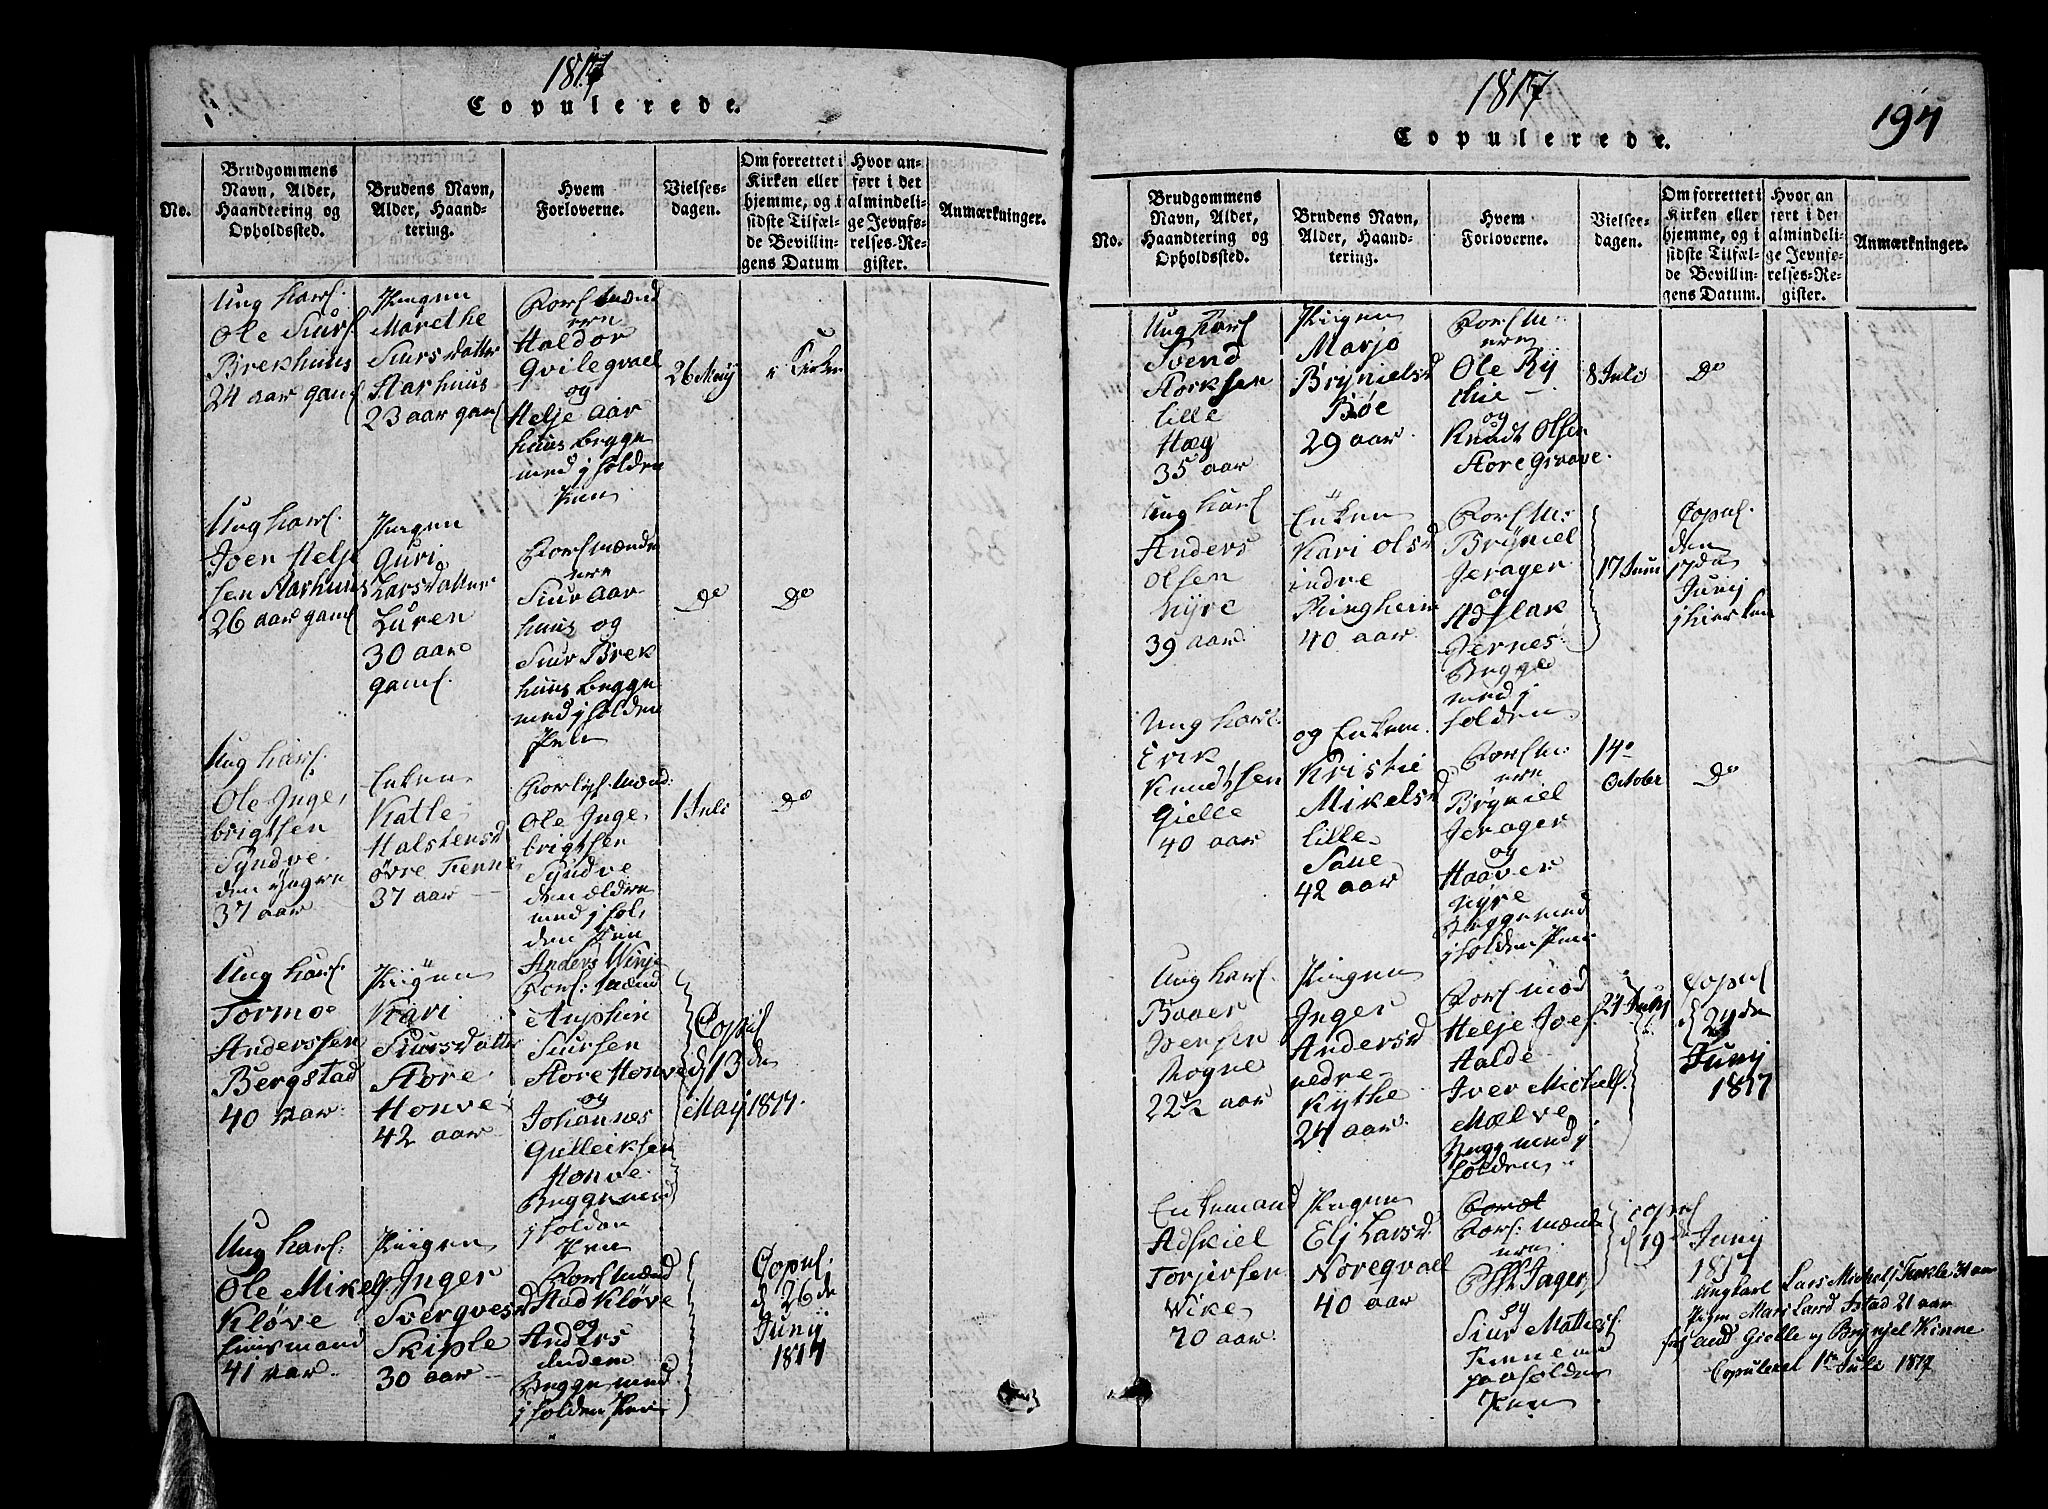 1817
Copulerede.
No.
Brudgommens
Navn, Alder,
Haandtering og
Opholdssted.
Brudens Navn,
Alder, Haand-
tering.
Hvem
Forloverne.
Vielses-
dagen.
Om forrettet i
Kirken eller
hjemme, og i
sidste Tilfæl-
de Bevillin-
gens Datum
Hvor an-
ført i det
almindeli-
ge Jevnfø-
relses-Re-
gister.
Anmærkninger.
Ung karl.
Ole Siurs
Brekhuus
24 aar gaml
Pigen
Marethe
Siursdatter
Aarhuus
23 aar gaml
Forl mænd
erne
Haldor
Qvilegvael
og
Helje Aar
huus begge
med j holden
Pen
26 Maij
i Kirken
Ung karl.
Joen Helje
sen Aarhuus
26 aar gaml
Pigen
Guri
Larsdatter
Luren
30 aar
gaml.
Forlmænde
erne
Siur Aar
huus og
Siur Brek
huus begge
med j holden
Pen
Do
Do
Ung karl.
Ole Inge,
brigtsen
Syndve
den Yngre
37 aar
Enken
Katle
Halstensd
øvre Tenne
37 aar
Ole Inge,
brigtsen
Syndve
den ældre
med j hol,
den Pen
1 Juli
Do
Ung karl.
Tormoe
Anderssen
Bergstad
40 aar
Piigen
Kari
Siursdatter
Store
Honve
42 aar
Anders Winje
Forl: mænd
Anphin
Siursen
Store Honve
og
Johannes
Gulleiksen
Honve
Begge med
j holden
Pen
Copul
d 13 de
Maij 1817.
Ung karl:
Ole Mikels
Kløve
huusmand
41 aar
Piigen
Inger
Sverqvesd
Skiple
30 aar
Forlmænd
Aad Kløve
og
Anders
ibidem
Begge med
j holden Pen
Copul.
d 26 de
Junij
1817
1817
Copulerede.
194
No.
Brudgommens
Navn, Alder,
Haandtering og
Opholdssted.
Brudens Navn,
Alder, Haand-
tering.
Hvem
Forloverne.
Vielses-
dagen.
Om forrettet i
Kirken eller
hjemme, og i
sidste Tilfæl-
de Bevillin-
gens Datum.
Hvor an
ført i det
almindeli-
ge Jevnfø-
relses-Re-
gister.
Anmærkninger.
Ung karl
Svend
Torksen
lille
Hæg
35 aar
Piigen
Marjo
Brynielsd
Bøe
29 aar
Forl M:
erne
Ole Ry
thie
og
Knudt Olsen
Store Graave.
8 Juli
Do
Ung karl
Anders
Olsen
Nyre
39 aar
Enken
Kari Olsd
indre
Ringheim
40 aar
Forl M:
Bryniel
Jerager
og
Adslak
Jernes
Begge
med j
holden
17 Juni
Copul.
den
17de
Junij
j kierken
Ung karl:
Erik
Knudtsen
Gielle
40 aar
og Enken
Kristie
Mikelsd
lille
Saue
42 aar
Forl M:
erne
Bryniel
Jerager
og
Haaver
Nyre
Begge med
j holden Pen
14 o
October
Do
Ung karl.
Baaer
Joensen
Rogne
22½ aar
Pigen
Inger
Andersd
nedre
Kythe
24 aar
Forl mød
Helje Joes
Halde
Iver Michels.
Mælve
Begge med j
holden
24 Junij
Copul
d 24 de
Junij
1817
Enkemand
Adskiel
Torjersen
Wike
70 aar
Pigen
Elj Larsd
Noreqvael
40 aar
Forl: mænd
erne
Jager
og
Siur Mathies
Tenne med
paaholden
Pen
copul
d 19 de
Junij
1817
Ungkarl Lars Michels Tøkle 31 aar
Pigen Mari Larsd Istad 21 aar
Gielle og Brynjel Kinne
Copuleret 1te Juli 1817